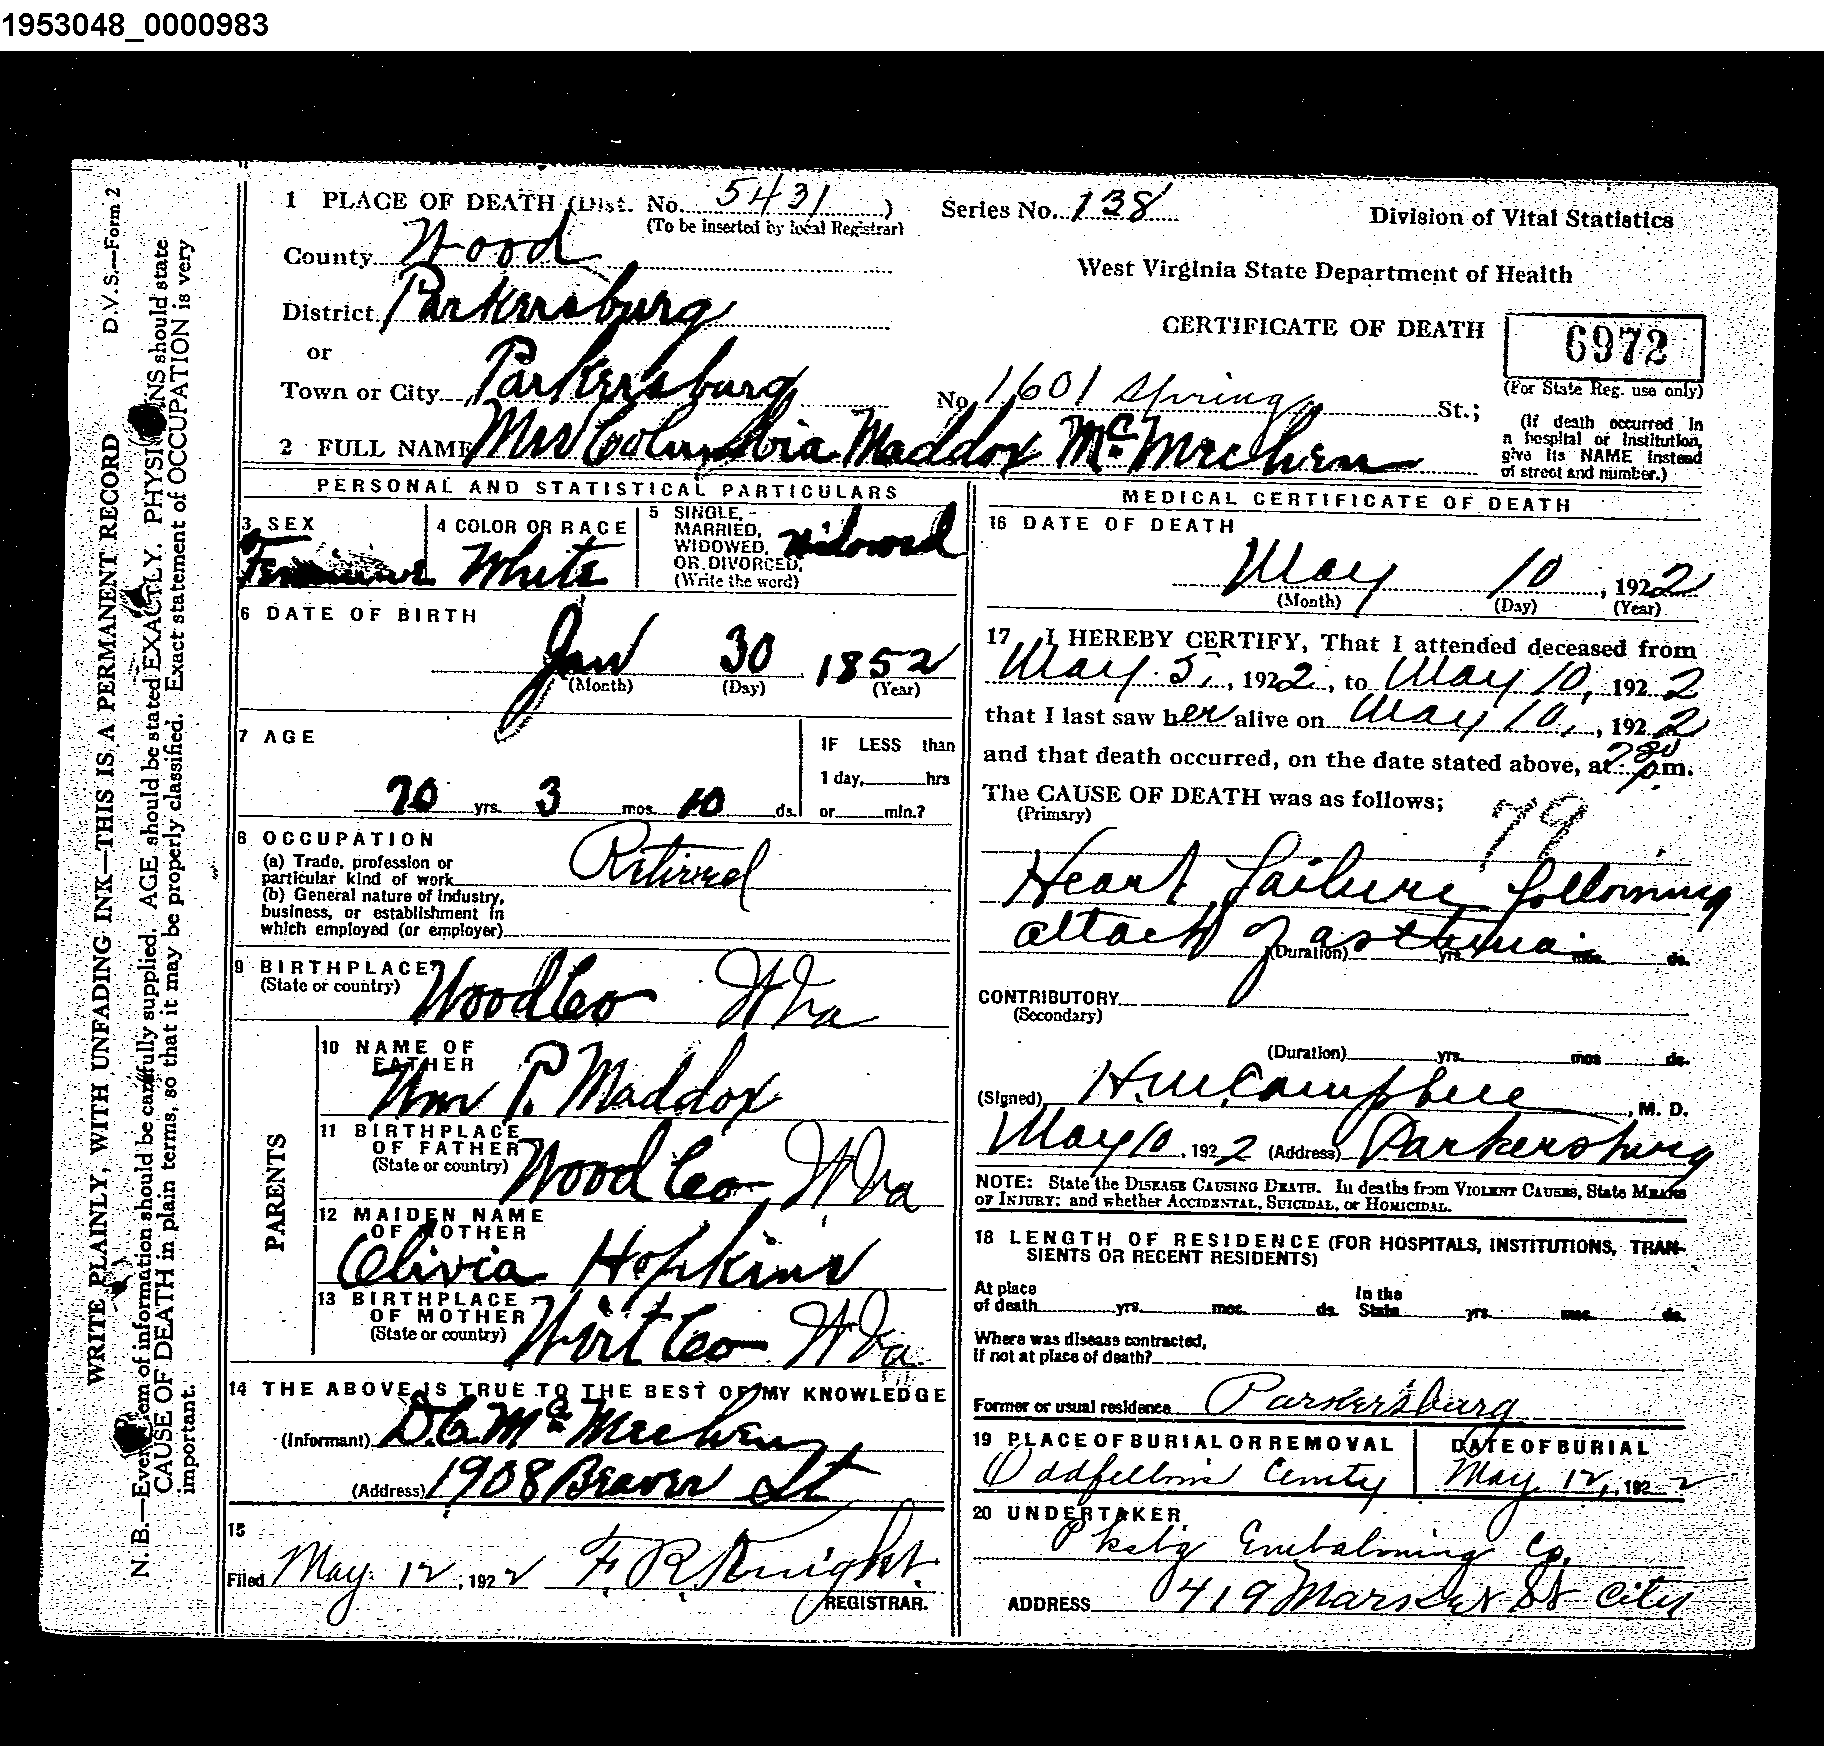 1953048_0000983
D.V.S.—Form 2
WRITE PLAINLY, WITH UNFADING INK—THIS IS A PERMANENT RECORD
N. B.—Every item of information should be carefully supplied. AGE should be stated EXACTLY. PHYSICIANS should state
CAUSE OF DEATH in plain terms, so that it may be properly classified. Exact statement of OCCUPATION is very
important.
1 PLACE OF DEATH (Dist. No. 5431 )
(To be inserted by local Registrar)
Series No. 138
Division of Vital Statistics
County Wood
West Virginia State Department of Health
District Parkersburg
CERTIFICATE OF DEATH
6972
(For State Reg. use only)
or
Town or City Parkersburg No 1601 Spring St.;
(If death occurred in
a hospital or institution,
give its NAME instead
of street and number.)
2 FULL NAME Mrs Columbia Maddox McMechen
PERSONAL AND STATISTICAL PARTICULARS
3 SEX
4 COLOR OR RACE
White
5 SINGLE,
MARRIED,
WIDOWED,
OR DIVORCED.
(Write the word)
Widowed
6 DATE OF BIRTH
Jan 30 1852
(Month) (Day) (Year)
7 AGE
70 yrs. 3 mos. 10 ds.
IF LESS than
1 day, hrs
or min.?
8 OCCUPATION
(a) Trade, profession or
particular kind of work
Retired
(b) General nature of industry,
business, or establishment in
which employed (or employer)
9 BIRTHPLACE
(State or country)
Wood Co W Va
PARENTS
10 NAME OF
FATHER
Wm P. Maddox
11 BIRTHPLACE
OF FATHER
(State or country)
Wood Co W Va
12 MAIDEN NAME
OF MOTHER
Olivia Hopkins
13 BIRTHPLACE
OF MOTHER
(State or country)
Wirt Co W Va
14 THE ABOVE IS TRUE TO THE BEST OF MY KNOWLEDGE
(Informant) D.C. McMechen
(Address) 1908 Beaver St
15
Filed May 12, 1922 F. R. Knight
REGISTRAR.
MEDICAL CERTIFICATE OF DEATH
16 DATE OF DEATH
May 10, 1922
(Month) (Day) (Year)
17 I HEREBY CERTIFY, That I attended deceased from
May 5, 1922, to May 10, 1922
that I last saw her alive on May 10, 1922
and that death occurred, on the date stated above, at 7 30 p.m.
The CAUSE OF DEATH was as follows;
(Primary)
79
Heart failure following
attack of asthma
(Duration) yrs. mos. ds.
CONTRIBUTORY
(Secondary)
(Duration) yrs. mos ds.
(Signed) H.M. Campbell, M. D.
May 10, 1922 (Address) Parkersburg
NOTE: State the DISEASE CAUSING DEATH. In deaths from VIOLENT CAUSES, State MEANS
OF INJURY; and whether ACCIDENTAL, SUICIDAL, or HOMICIDAL.
18 LENGTH OF RESIDENCE (FOR HOSPITALS, INSTITUTIONS, TRAN-
SIENTS OR RECENT RESIDENTS)
At place In the
of death yrs. mos. ds. State yrs. mos. ds.
Where was disease contracted,
if not at place of death?
Former or usual residence Parkersburg
19 PLACE OF BURIAL OR REMOVAL
DATE OF BURIAL
Oddfellows Cemty
May 12, 1922
20 UNDERTAKER
Pksbg Embalming Co.
ADDRESS 419 Market St City